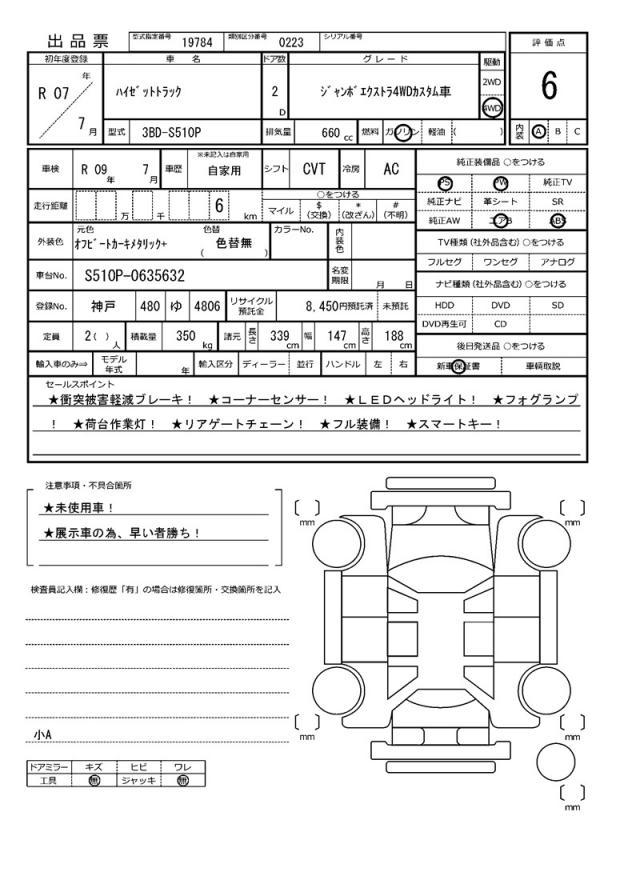 出品票 型式指定番号 19784 類別区分番号 0223 シリアル番号
評価点
6
内装 A B C
初年度登録 車名 ドア数 グレード 駆動
R 07 年 7 月 ﾊｲｾﾞｯﾄﾄﾗｯｸ 2 D ｼﾞｬﾝﾎﾞｴｸｽﾄﾗ4WDカスタム車 2WD 4WD
型式 3BD-S510P 排気量 660 cc 燃料 ガソリン 軽油 ( )
車検 R 09 年 7 月 車歴 ※未記入は自家用 自家用 シフト CVT 冷房 AC
走行距離 万 千 6 km ○をつける マイル $(交換) *(改ざん) #(不明)
外装色 元色 ｵﾌﾋﾞｰﾄｶｰｷﾒﾀﾘｯｸ+ 色替 ( 色替無 ) カラーNo. 内装色
車台No. S510P-0635632 名変期限 月 日
登録No. 神戸 480 ゆ 4806 リサイクル預託金 8,450円預託済 未預託
定員 2( )人 積載量 350 kg 諸元 長さ 339 cm 幅 147 cm 高さ 188 cm
輸入車のみ⇒ モデル年式 年 輸入区分 ディーラー 並行 ハンドル 左 右
純正装備品 ○をつける
PS PW 純正TV
純正ナビ 革シート SR
純正AW エアB ABS
TV種類 (社外品含む) ○をつける
フルセグ ワンセグ アナログ
ナビ種類 (社外品含む) ○をつける
HDD DVD SD
DVD再生可 CD
後日発送品 ○をつける
新車保証書 車輌取説
セールスポイント
★衝突被害軽減ブレーキ！ ★コーナーセンサー！ ★ＬＥＤヘッドライト！ ★フォグランプ
！ ★荷台作業灯！ ★リアゲートチェーン！ ★フル装備！ ★スマートキー！
注意事項・不具合箇所
★未使用車！
★展示車の為、早い者勝ち！
検査員記入欄：修復歴「有」の場合は修復箇所・交換箇所を記入
小A
ドアミラー キズ ヒビ ワレ
工具 無 ジャッキ 無
mm mm
mm mm
mm